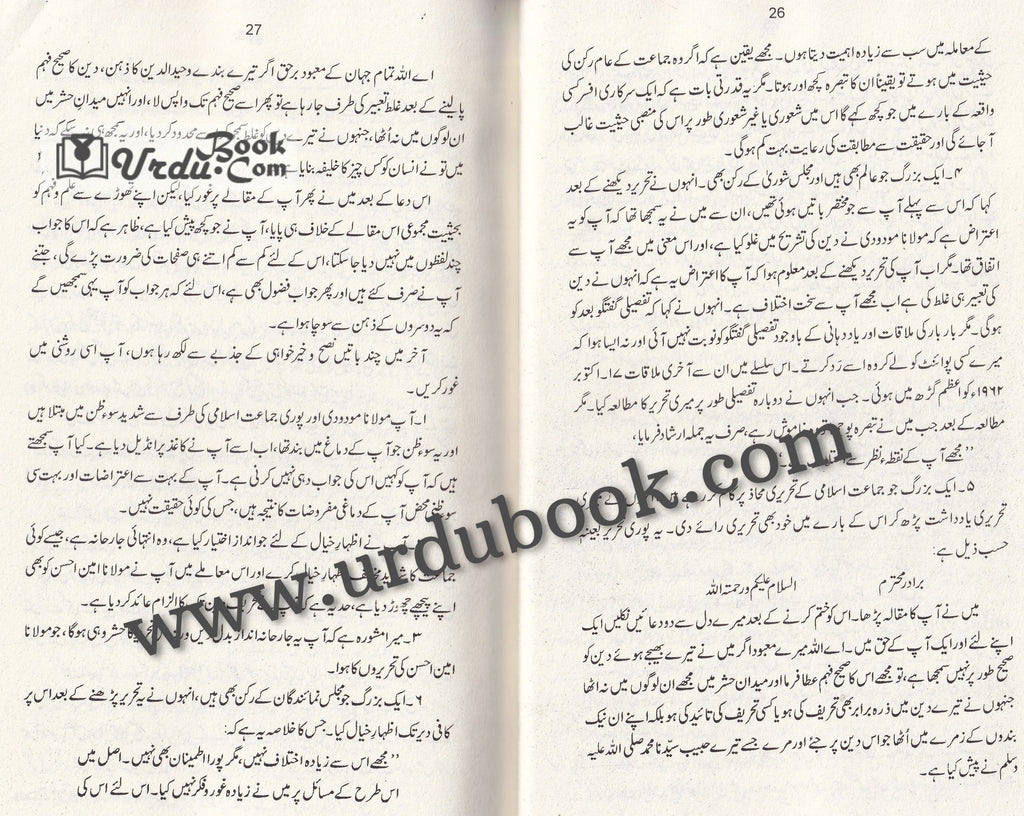 26
کے معاملہ میں سب سے زیادہ اہمیت دیتا ہوں۔ مجھے یقین ہے کہ اگر وہ جماعت کے عام رکن کی
حیثیت میں ہوتے تو یقیناً ان کا تبصرہ کچھ اور ہوتا۔ مگر یہ قدرتی بات ہے کہ ایک سرکاری افسر کسی
واقعہ کے بارے میں جو کچھ کہے گا اس میں شعوری یا غیر شعوری طور پر اس کی منصبی حیثیت غالب
آجائے گی اور حقیقت سے مطابقت کی رعایت بہت کم ہوگی۔
۴۔ ایک بزرگ جو عالم بھی ہیں اور مجلس شوریٰ کے رکن بھی۔ انہوں نے تحریر دیکھنے کے بعد
کہا کہ اس سے پہلے آپ سے جو مختصر باتیں ہوئی تھیں، ان سے میں نے یہ سمجھا تھا کہ آپ کو یہ
اعتراض ہے کہ مولانا مودودی نے دین کی تشریح میں غلو کیا ہے، اور اس معنی میں مجھے آپ سے
اتفاق تھا۔ مگر اب آپ کی تحریر دیکھنے کے بعد معلوم ہوا کہ آپ کا اعتراض یہ ہے کہ انہوں نے دین
کی تعبیر ہی غلط کی ہے اب مجھے آپ سے سخت اختلاف ہے۔ انہوں نے کہا کہ تفصیلی گفتگو بعد کو
ہوگی۔ مگر بار بار کی ملاقات اور یاد دہانی کے باوجود تفصیلی گفتگو کو نوبت نہیں آئی اور نہ ایسا ہوا کہ
میرے کسی پوائنٹ کو لے کر وہ اسے رَد کرتے۔ اس سلسلے میں ان سے آخری ملاقات ۱۷۔ اکتوبر
۱۹۶۲ء کو اعظم گڑھ میں ہوئی۔ جب انہوں نے دوبارہ تفصیلی طور پر میری تحریر کا مطالعہ کیا۔ مگر
مطالعہ کے بعد جب میں نے تبصرہ خاموش رہے، صرف یہ جملہ ارشاد فرمایا،
’’ مجھے آپ کے نقطۂ نظر سے
۵۔ ایک بزرگ جو جماعت اسلامی کے تحریری محاذ پر کام
تحریری یادداشت پڑھ کر اس کے بارے میں خود بھی تحریری رائے دی۔ یہ پوری تحریر بعینہٖ
حسب ذیل ہے:
برادر محترم السلام علیکم ورحمتہ اللہ
میں نے آپ کا مقالہ پڑھا۔ اس کو ختم کرنے کے بعد میرے دل سے دو دعائیں نکلیں ایک
اپنے لئے اور ایک آپ کے حق میں۔ اے اللہ میرے معبود اگر میں نے تیرے بھیجے ہوئے دین کو
صحیح طور پر نہیں سمجھا ہے، تو مجھے اس کا صحیح فہم عطا فرما اور میدان حشر میں مجھے ان لوگوں میں نہ اٹھا
جنہوں نے تیرے دین میں ذرہ برابر بھی تحریف کی ہو یا کسی تحریف کی تائید کی ہو بلکہ اپنے ان نیک
بندوں کے زمرے میں اُٹھا جو اس دین پر جئے اور مرے جسے تیرے حبیب سیدنا محمد صلی اللہ علیہ
وسلم نے پیش کیا ہے۔
27
اے اللہ تمام جہان کے معبود برحق اگر تیرے بندے وحید الدین کا ذہن، دین کا صحیح فہم
پالینے کے بعد غلط تعبیر کی طرف جا رہا ہے تو پھر اسے صحیح فہم تک واپس لا، اور انہیں میدان حشر میں
ان لوگوں میں نہ اُٹھا، جنہوں نے تیرے محدود کر دیا، اور یہ سمجھ ہی نہ سکے کہ دنیا
میں تو نے انسان کو کس چیز کا خلیفہ بنایا
اس دعا کے بعد میں نے پھر آپ کے مقالے پر غور کیا، لیکن اپنے تھوڑے سے علم و فہم کو
بحیثیت مجموعی اس مقالے کے خلاف ہی پایا، آپ نے جو کچھ پیش کیا ہے، ظاہر ہے کہ اس کا جواب
چند لفظوں میں نہیں دیا جا سکتا، اس کے لئے کم سے کم اتنے ہی صفحات کی ضرورت پڑے گی، جتنے
آپ نے صرف کئے ہیں اور پھر جواب فضول بھی ہے، اس لئے کہ ہر جواب کو آپ یہی سمجھیں گے
کہ یہ دوسروں کے ذہن سے سوچا ہوا ہے۔
آخر میں چند باتیں نصح و خیر خواہی کے جذبے سے لکھ رہا ہوں، آپ اسی روشنی میں
غور کریں۔
۱۔ آپ مولانا مودودی اور پوری جماعت اسلامی کی طرف سے شدید سوءِ ظن میں مبتلا ہیں
اور یہ سوءِ ظن جو آپ کے دماغ میں بند تھا، اب اسے آپ نے کاغذ پر انڈیل دیا ہے۔ کیا آپ سمجھتے
ہیں کہ آپ کو کہیں اس کی جواب دہی نہیں کرنی ہے۔ آپ کے بہت سے اعتراضات اور بہت سی
سوءِ ظنی محض آپ کے دماغی مفروضات کا نتیجہ ہیں، جس کی کوئی حقیقت نہیں۔
آپ نے اظہار خیال کے لئے جو انداز اختیار کیا ہے، وہ انتہائی جارحانہ ہے، جیسے کوئی
جماعت کا اظہار خیال کرے اور اس معاملے میں آپ نے مولانا امین احسن کو بھی
اپنے پیچھے چھوڑ دیا ہے، حد یہ ہے کہ کا الزام عائد کر دیا ہے۔
۳۔ میرا مشورہ ہے کہ آپ یہ جارحانہ انداز بدل حشر وہی ہوگا، جو مولانا
امین احسن کی تحریروں کا ہوا۔
۶۔ ایک بزرگ جو مجلس نمائندگان کے رکن بھی ہیں، انہوں نے یہ تحریر پڑھنے کے بعد اس پر
کافی دیر تک اظہار خیال کیا۔ جس کا خلاصہ یہ ہے کہ:
’’ مجھے اس سے زیادہ اختلاف نہیں، مگر پورا اطمینان بھی نہیں۔ اصل میں
اس طرح کے مسائل پر میں نے زیادہ غور و فکر نہیں کیا۔ اس لئے اس کی
Urdu Book.Com
www.urdubook.com